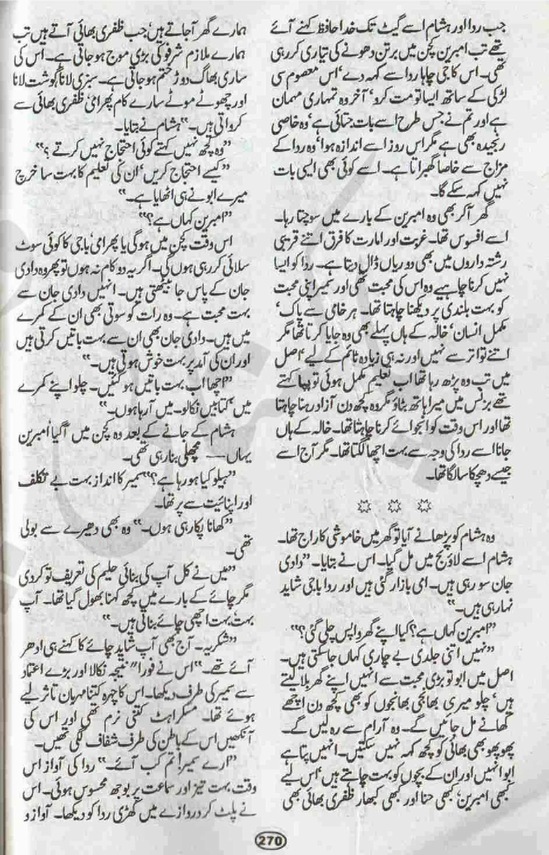 جب ردا اور ہشام اسے گیٹ تک خدا حافظ کہنے آئے
تھے تب امبرین کچن میں برتن دھونے کی تیاری کر رہی
تھی۔ اس کا جی چاہا ردا سے کہہ دے‘ اس معصوم سی
لڑکی کے ساتھ ایسا تو مت کرو‘ آخر وہ تمہاری مہمان
ہے اور تم نے جس طرح اسے بات جتائی ہے‘ وہ خاصی
رنجیدہ بھی ہے مگر اس روز اسے اندازہ ہوا‘ وہ ردا کے
مزاج سے خاصا گھبراتا ہے۔ اسے کوئی بھی ایسی بات
نہیں کہہ سکے گا۔
گھر آ کر بھی وہ امبرین کے بارے میں سوچتا رہا۔
اسے افسوس تھا۔ غربت اور امارت کا فرق اتنے قریبی
رشتہ داروں میں بھی دوریاں ڈال دیتا ہے۔ ردا کو ایسا
نہیں کرنا چاہیے وہ اس کی محبت تھی اور سمیر اپنی محبت
کو بہت بلندی پر دیکھنا چاہتا تھا۔ ہر خامی سے پاک‘
مکمل انسان‘ خالہ کے ہاں پہلے بھی وہ جایا کرتا تھا مگر
اتنے تواتر سے نہیں اور نہ ہی زیادہ ٹائم کے لیے‘ اصل
میں تب وہ پڑھ رہا تھا اب تعلیم مکمل ہوئی تو پپا کہتے
تھے بزنس میں میرا ہاتھ بٹاؤ مگر وہ کچھ دن آزاد رہنا چاہتا
تھا اور اس وقت کو انجوائے کرنا چاہتا تھا۔ خالہ کے ہاں
جانا اسے ردا کی وجہ سے بہت اچھا لگتا تھا۔ مگر آج اسے
جیسے دھچکا سا لگا تھا۔
☆ ☆ ☆
وہ ہشام کو پڑھانے آیا تو گھر میں خاموشی کا راج تھا۔
ہشام اسے لاؤنج میں مل گیا۔ اس نے بتایا۔ ”دادی
جان سو رہی ہیں۔ امی بازار گئی ہیں اور ردا باجی شاید
نہا رہی ہیں۔“
”امبرین کہاں ہے؟ کیا اپنے گھر واپس چلی گئی؟“
”نہیں اتنی جلدی بے چاری کہاں جا سکتی ہیں۔
اصل میں ابو تو بڑی محبت سے انہیں اپنے گھر بلا لیتے
ہیں‘ چلو میری بھانجی بھانجوں کو بھی کچھ دن اچھے
کھانے مل جائیں گے۔ وہ آرام سے رہ لیں گے۔
پھوپھو بھی بھائی کو کچھ کہہ نہیں سکتیں۔ انہیں پتا ہے
ابو انہیں اور ان کے بچوں کو بہت چاہتے ہیں‘ اس لیے
کبھی امبرین‘ کبھی حنا اور کبھی کبھار ظفری بھائی بھی
ہمارے گھر آ جاتے ہیں‘ جب ظفری بھائی آتے ہیں تب
ہمارے ملازم شرفو کی بڑی موج ہو جاتی ہے۔ اس کی
ساری بھاگ دوڑ ختم ہو جاتی ہے۔ سبزی لانا گوشت لانا
اور چھوٹے موٹے سارے کام پھر امی ظفری بھائی سے
کرواتی ہیں۔“ ہشام نے بتایا۔
”وہ کچھ نہیں کہتے کوئی احتجاج نہیں کرتے؟“
”کیسے احتجاج کریں‘ ان کی تعلیم کا بہت سا خرچ
میرے ابو نے ہی اٹھایا ہے۔“
”امبرین کہاں ہے؟“
اس وقت کچن میں ہو گی یا پھر امی‘ باجی کا کوئی سوٹ
سلائی کر رہی ہوں گی۔ اگر یہ دو کام نہ ہوں تو پھر وہ دادی
جان کے پاس جا بیٹھتی ہیں۔ انہیں دادی جان سے
بہت محبت ہے۔ وہ رات کو سوتی بھی ان کے کمرے
میں ہیں۔ دادی جان بھی ان سے بہت باتیں کرتی ہیں
اور ان کی آمد پر بہت خوش ہوتی ہیں۔“
”اچھا اب بہت باتیں ہو گئیں۔ چلو اپنے کمرے
میں کتابیں نکالو۔ میں آ رہا ہوں۔“
ہشام کے جانے کے بعد وہ کچن میں آ گیا امبرین
یہاں — مچھلی بنا رہی تھی۔
”ہیلو کیا ہو رہا ہے؟“ سمیر کا انداز بہت بے تکلف
اور اپنائیت سے پر تھا۔
”کھانا پکا رہی ہوں۔“ وہ بھی دھیرے سے بولی
تھی۔
”میں نے کل آپ کی بنائی حلیم کی تعریف تو کر دی
مگر چائے کے بارے میں کچھ کہنا بھول گیا تھا۔ آپ
بہت بہت اچھی چائے بناتی ہیں۔“
”شکریہ۔ آج بھی آپ شاید چائے کا کہنے ہی ادھر
آئے تھے۔“ اس نے فوراً ”نتیجہ نکالا اور بڑے اعتماد
سے سمیر کی طرف دیکھا۔ اس کا چہرہ کتنا مہربان تاثر لیے
ہوئے تھا۔ مسکراہٹ کتنی نرم تھی اور اس کی
آنکھیں اس کے باطن کی طرف شفاف لگی تھیں۔
”ارے سمیر! تم کب آئے۔“ ردا کی آواز اس
وقت بہت تیز اور سماعت پر بوجھ محسوس ہوئی۔ اس
نے پلٹ کر دروازے میں کھڑی ردا کو دیکھا۔ آواز و
270